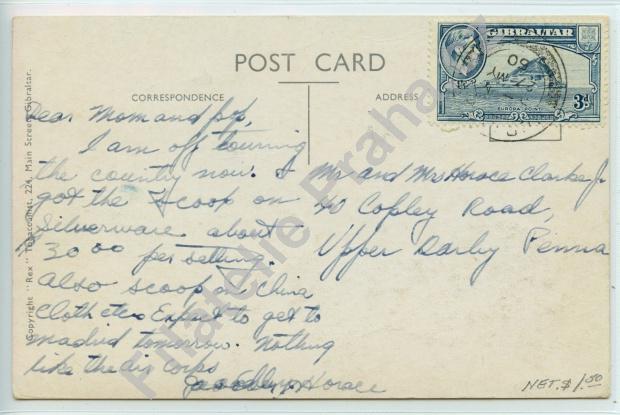 POST CARD
CORRESPONDENCE
ADDRESS
GIBRALTAR
3d
EUROPA POINT
MY
50
Dear Mom and Pop,
I am off touring
the country now. &
got the scoop on
Silverware about
30.00 per setting.
Also scoop on China
Cloth etc. Expect to get to
madrid tomorrow. Nothing
like the air corps
Horace
Mr and Mrs Horace Clarke Jr.
40 Copley Road,
Upper Darby Penna
Copyright "Rex" Tobacconist, 224, Main Street, Gibraltar.
Filatelie Praha
NET. $1.50